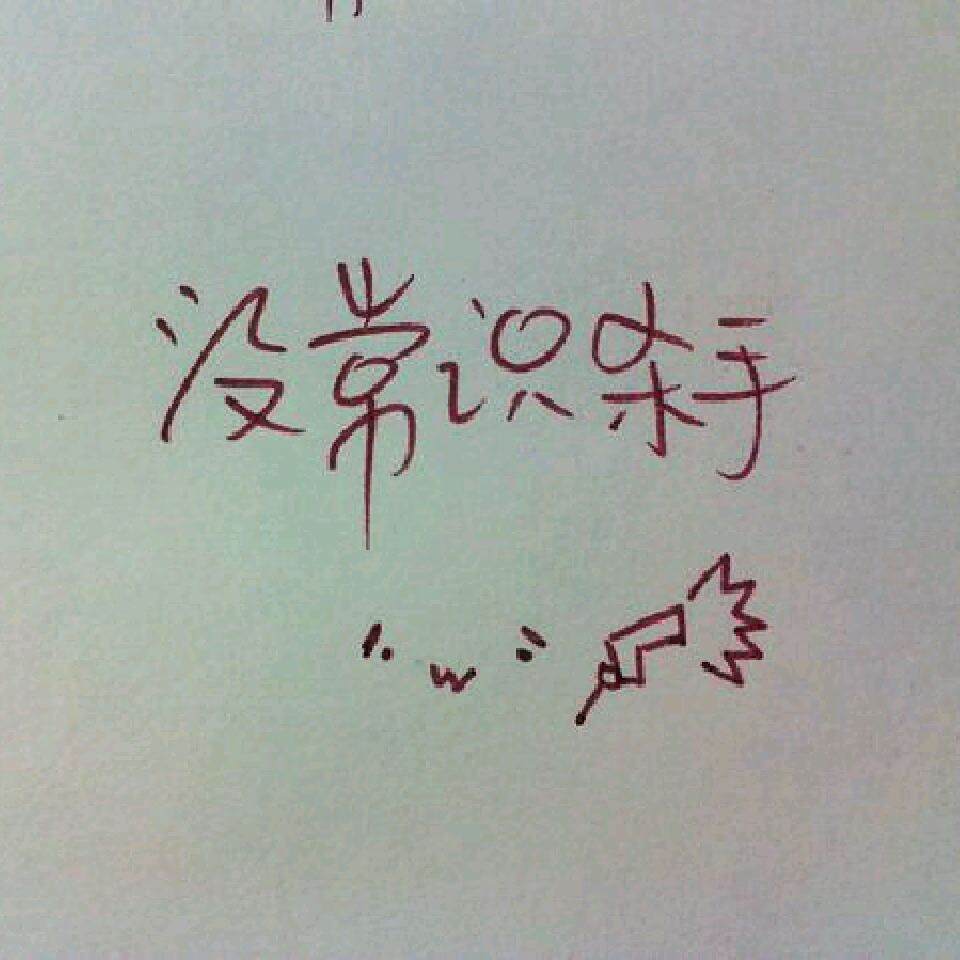 没常识杀手